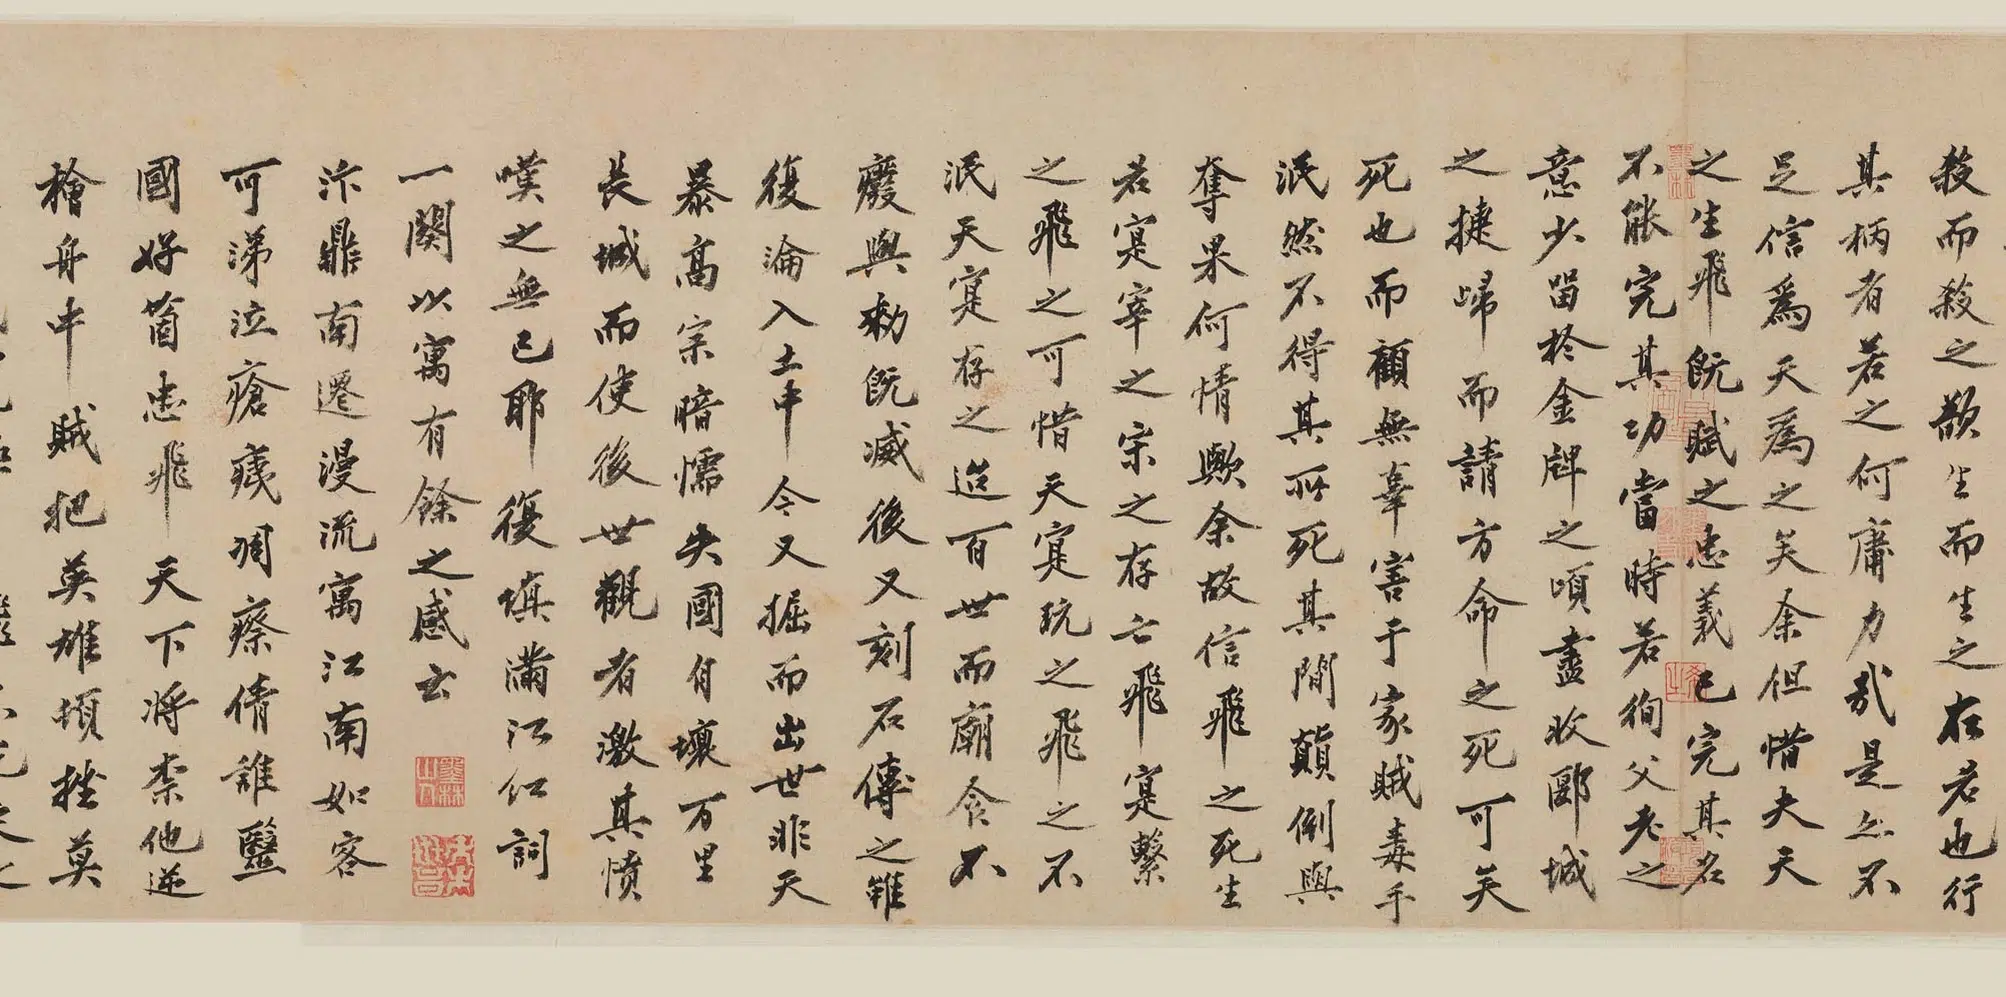 殺而殺之歆生而生之在若也行
其柄者若之何庸力哉是亦不
足信為天為之矣余但惜夫天
之生飛既賦之忠義已完其名
不能完其功當時若徇父老之
意少留於金牌之頃盡收郾城
之捷歸而請方命之死可矣
死也而顧無辜害于家賊毒手
泯然不得其所死其間顛倒與
奪果何情歟余故信飛之死生
若寔宰之宋之存亡飛寔繫
之飛之可惜天寔玩之飛之不
泯天寔存之迨百世而廟食不
廢與勑既滅後又刻石傳之雖
復淪入土中今又掘而出世非天
暴高宗暗懦失國自壞万里
長城而使後世觀者激其憤
嘆之無已耶復填滿江紅詞
一闋以寓有餘之感云
汴鼎南遷漫流寓江南如客
可涕泣瘡痍凋瘵倩誰醫
國好箇忠飛天下將柰他逆
檜舟中賊把英雄頓挫莫